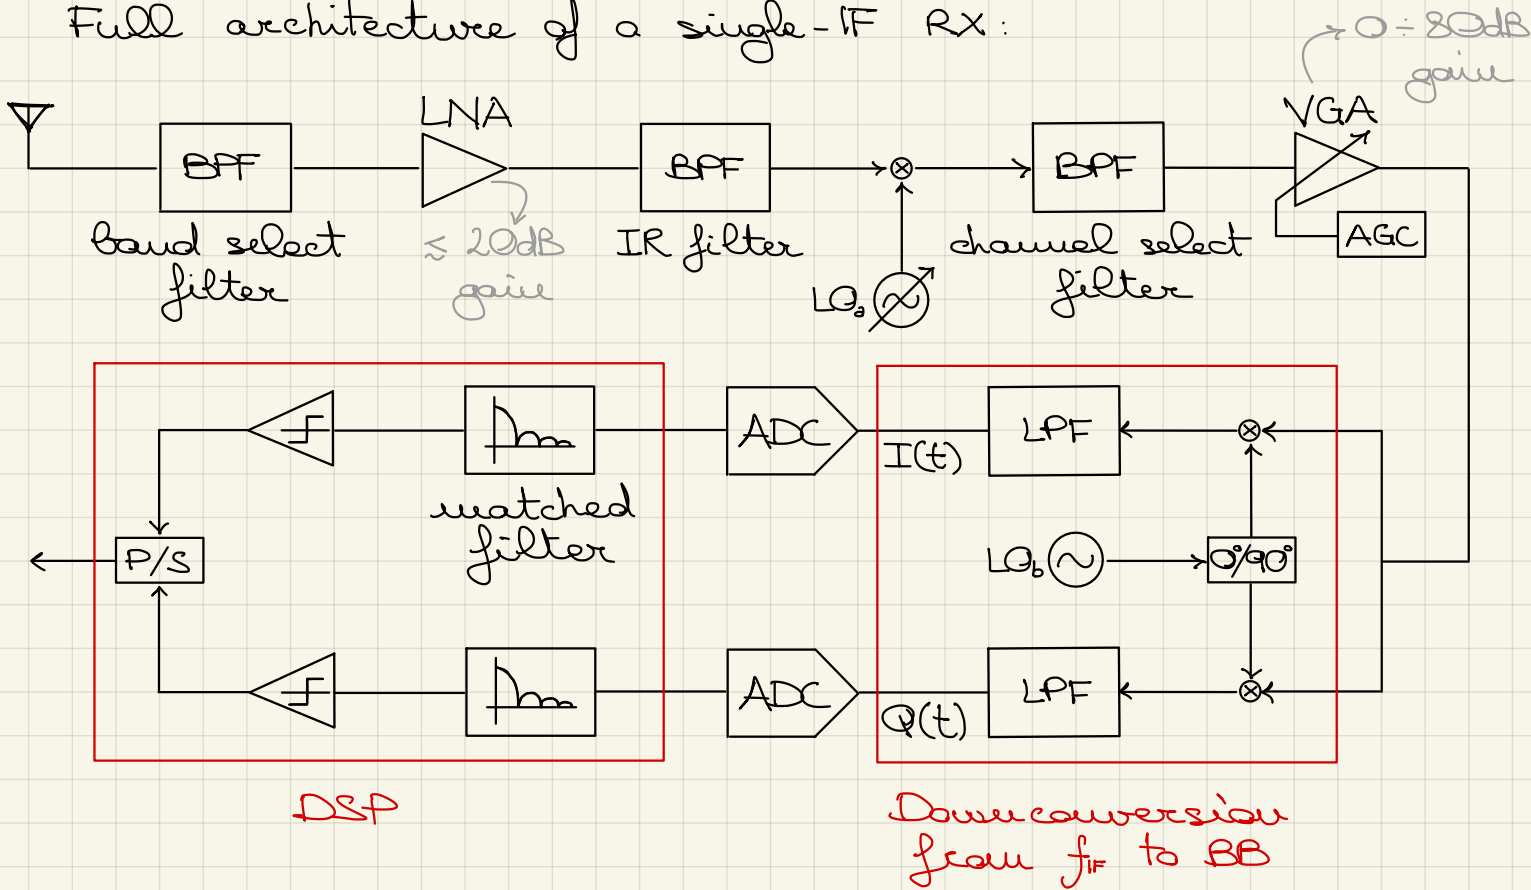 Full architecture of a single-IF RX:
0 ÷ 80dB
gain
LNA
VGA
BPF
BPF
BPF
band select
filter
≲ 20dB
gain
IR filter
channel select
filter
AGC
LOa
ADC
LPF
I(t)
matched
filter
P/S
LOb
0°/90°
ADC
LPF
Q(t)
DSP
Downconversion
from fIF to BB